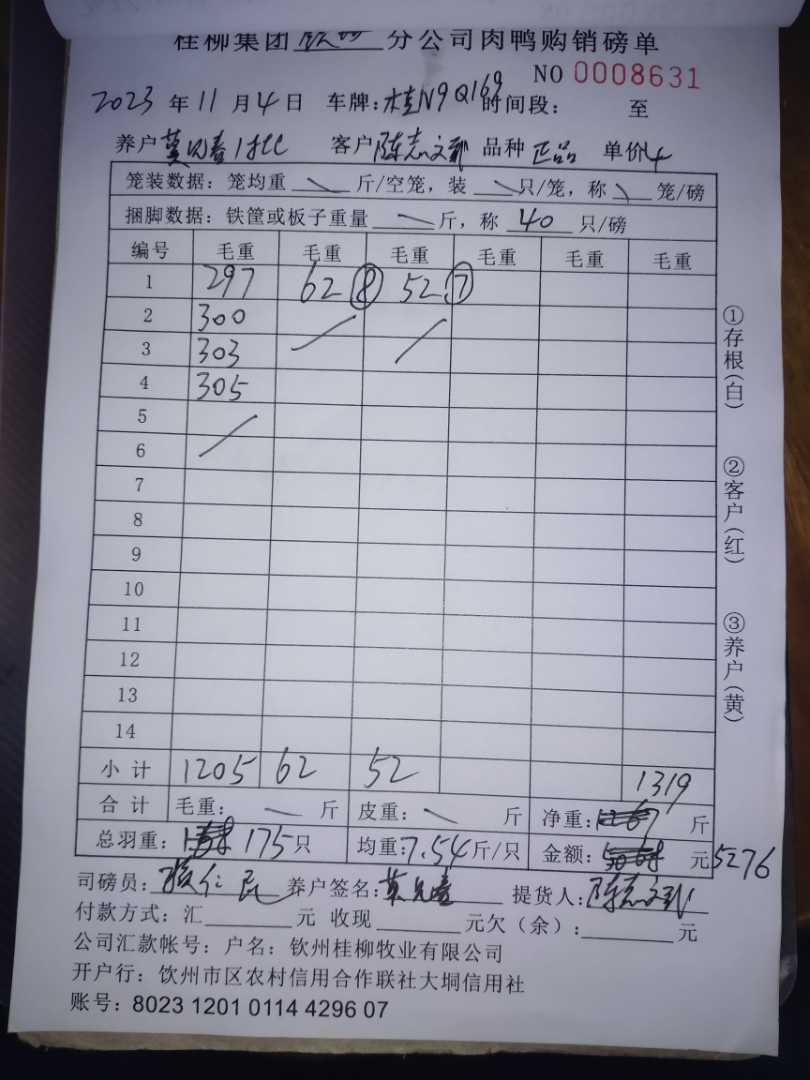 桂柳集团 钦州 分公司肉鸭购销磅单
NO 0008631
2023 年 11 月 4 日 车牌: 桂N9Q169 时间段: 至
养户 莫 春 客户 陈志文 品种 正品 单价 4
笼装数据: 笼均重 斤/空笼, 装 只/笼, 称 笼/磅
捆脚数据: 铁筐或板子重量 斤, 称 40 只/磅
编号 毛重 毛重 毛重 毛重 毛重 毛重
1 297 62 ⑧ 52 ⑦
2 300
3 303
4 305
5
6
7
8
9
10
11
12
13
14
小计 1205 62 52 1319
合计 毛重: 斤 皮重: 斤 净重: 斤
总羽重: 175 只 均重: 7.54 斤/只 金额: 元 5276
司磅员: 民 养户签名: 莫 春 提货人: 陈志文
付款方式: 汇 元 收现 元欠(余): 元
公司汇款帐号: 户名: 钦州桂柳牧业有限公司
开户行: 饮州市区农村信用合作联社大垌信用社
账号: 8023 1201 0114 4296 07
①存根(白)
②客户(红)
③养户(黄)